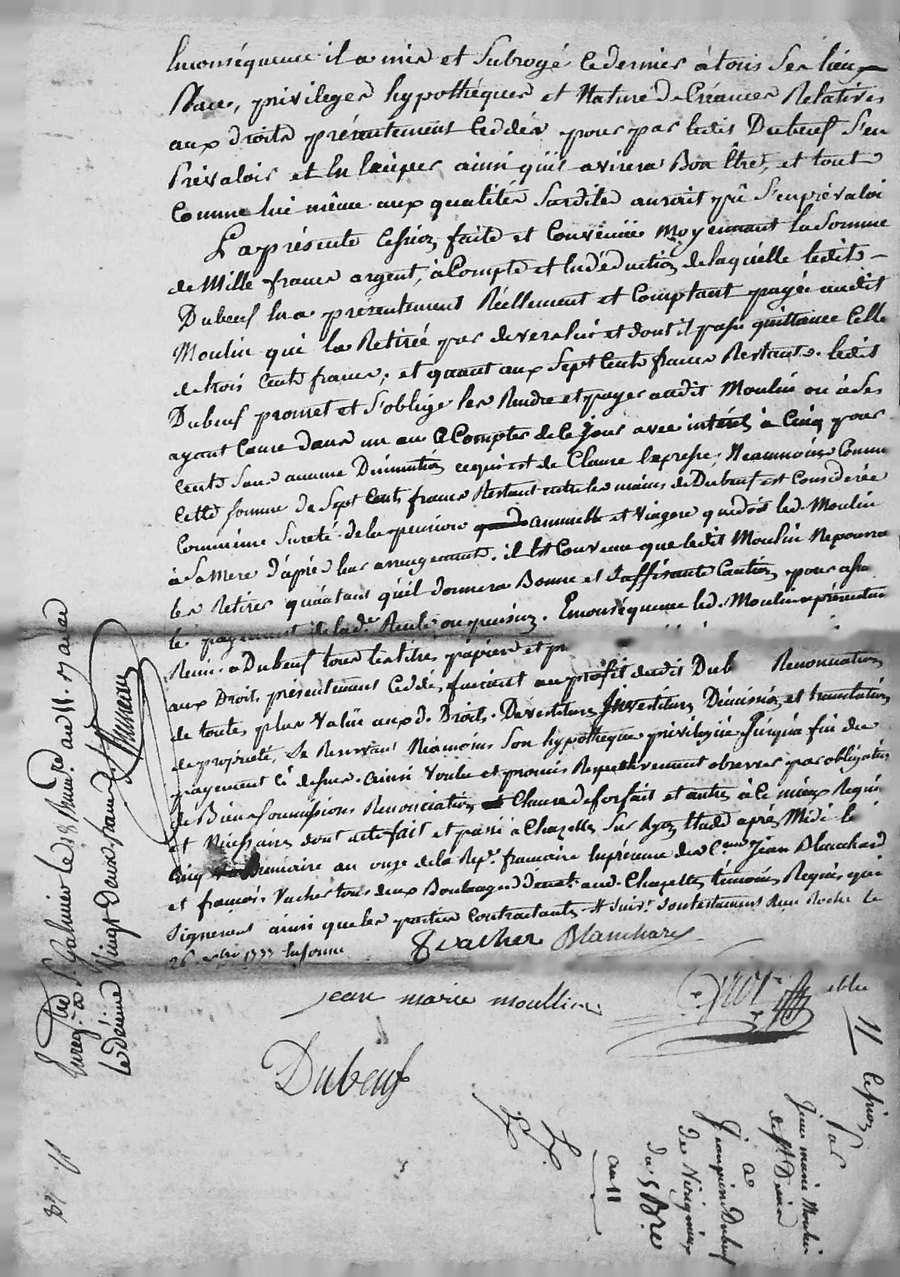 Enconséquence il a mis et Subrogé ce dernier à tous ses lieu,
Place, privileges hypothéques et Nature de Créances Relatives
aux droits présentement Cedés pour par ledit Dubeuf s'en
Prévaloir et en ainsi qu'il avisera Bon Être, et tout
Comme lui même aux qualités Susdites auroit pû s'enprévaloi
La présente Cession faite et Convenüe moyennant la Somme
de Mille francs argent, acompte et en déduction de laquelle ledit
Dubeuf en a présentement Réellement et Comptant payé audit
Moulin qui la Retirée par devers lui et dont il passe quittance Celle
de trois Cents francs; et quant aux Sept Cents francs Restants ledit
Dubeuf promet et s'oblige les Rendre et payer audit Moulin ou à Ses
ayant Cause dans un an à Compter de ce Jour avec intérêt à Cinq pour
Cent Sans aucune Diminution ce qui est de Clause Expresse; Néanmoins Comme
Cette somme de Sept Cents francs Restant entre les mains de Dubeuf est Considérée
Comme une Sureté de la pension annuelle et Viagere que doit led. Moulin
à Sa Mere d'après leur arrangement, il Est Convenu que ledit Moulin Ne pourra
les Retirer qu'autant qu'il donnera Bonne et Suffisante Caution pour
le payement de lad.e Rente ou pension. Enconséquence led. Moulin a présentem
Remis a Dubeuf tous les titres, papiers et
aux Droits présentement Cedés, faisant au profit dudit Dub Renonciation
de toutes plus Value aux d. Droits. Devestiture Investiture Démission et translation
de propriété, Se Reservant Néamoins Son hypothéque privilégiée Jusqua fin de
payement Ci dessus. ainsi Voulu et promis Respectivement observer par obligation
de Biens Soumissions Renonciation Clause de forfait et autres à ce mieux Requis
et Nécessaires dont acte fait et passé à Chazelles Sur après Midi le
Cinq Brumaire an onze de la Rep.e francaise En présence des C.ens Jean Blanchard
et francois Vacher tous deux Boulangers dud. Chazelles témoins Requis qui
Signeront ainsi que les parties Contractantes
26 1777 Enforme
Vacher Blanchard
jean marie moullin
Dubeuf
Enreg.tré à S.t Galmier le 8 Brum.re an 11.
le dixième Vingt deux francs
11
Cession
Par
Jean marie Moulin
de St Denis
à
Jean pierre Dubeuf
de
du 5 Bre
an 11